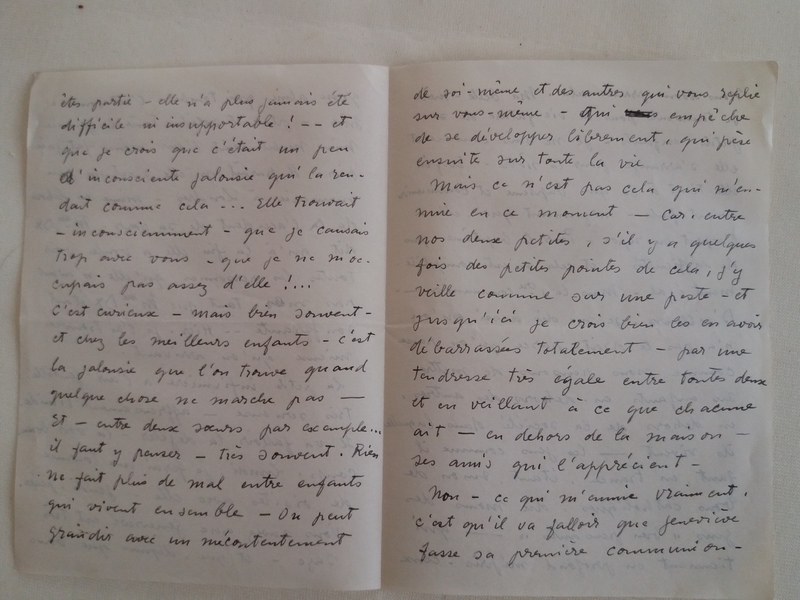 êtes partie - elle n'a plus jamais été
difficile ni insupportable ! -- et
que je crois que c'était un peu
d'inconsciente jalousie qui la ren-
dait comme cela ... Elle trouvait
- inconsciemment - que je causais
trop avec vous - que je ne m'oc-
cupais pas assez d'elle !...
C'est curieux - mais bien souvent -
et chez les meilleurs enfants - c'est
la jalousie que l'on trouve quand
quelque chose ne marche pas —
Et - entre deux sœurs par exemple...
il faut y penser - très souvent. Rien
ne fait plus de mal entre enfants
qui vivent ensemble - On peut
grandir avec un mécontentement
de soi-même et des autres qui vous replie
sur vous-même - Qui empêche
de se développer librement, qui pèse
ensuite sur toute la vie
Mais ce n'est pas cela qui m'en-
nuie en ce moment — Car, entre
nos deux petites, s'il y a quelques
fois des petites pointes de cela, j'y
veille comme sur une peste - et
jusqu'ici je crois bien les en avoir
débarrassées totalement - par une
tendresse très égale entre toutes deux
et en veillant à ce que chacune
ait — en dehors de la maison —
ses amis qui l'apprécient -
Non - ce qui m'ennuie vraiment,
c'est qu'il va falloir que Geneviève
fasse sa première communion -